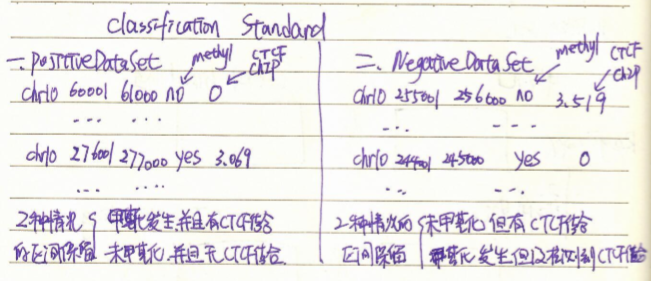 Classification Standard
一. PositiveDataSet methyl CTCF ChIP
chr10 60001 61000 no 0
... ...
chr10 276001 277000 yes 3.069
... ...
2种情况 甲基化发生并且有CTCF结合
的区间保留 未甲基化并且无CTCF结合
二. Negative Data Set methyl CTCF ChIP
chr10 255001 256000 no 3.519
... ...
chr10 244001 245000 yes 0
... ...
2种情况的 未甲基化但有CTCF结合
区间保留 甲基化发生但没检测到CTCF结合